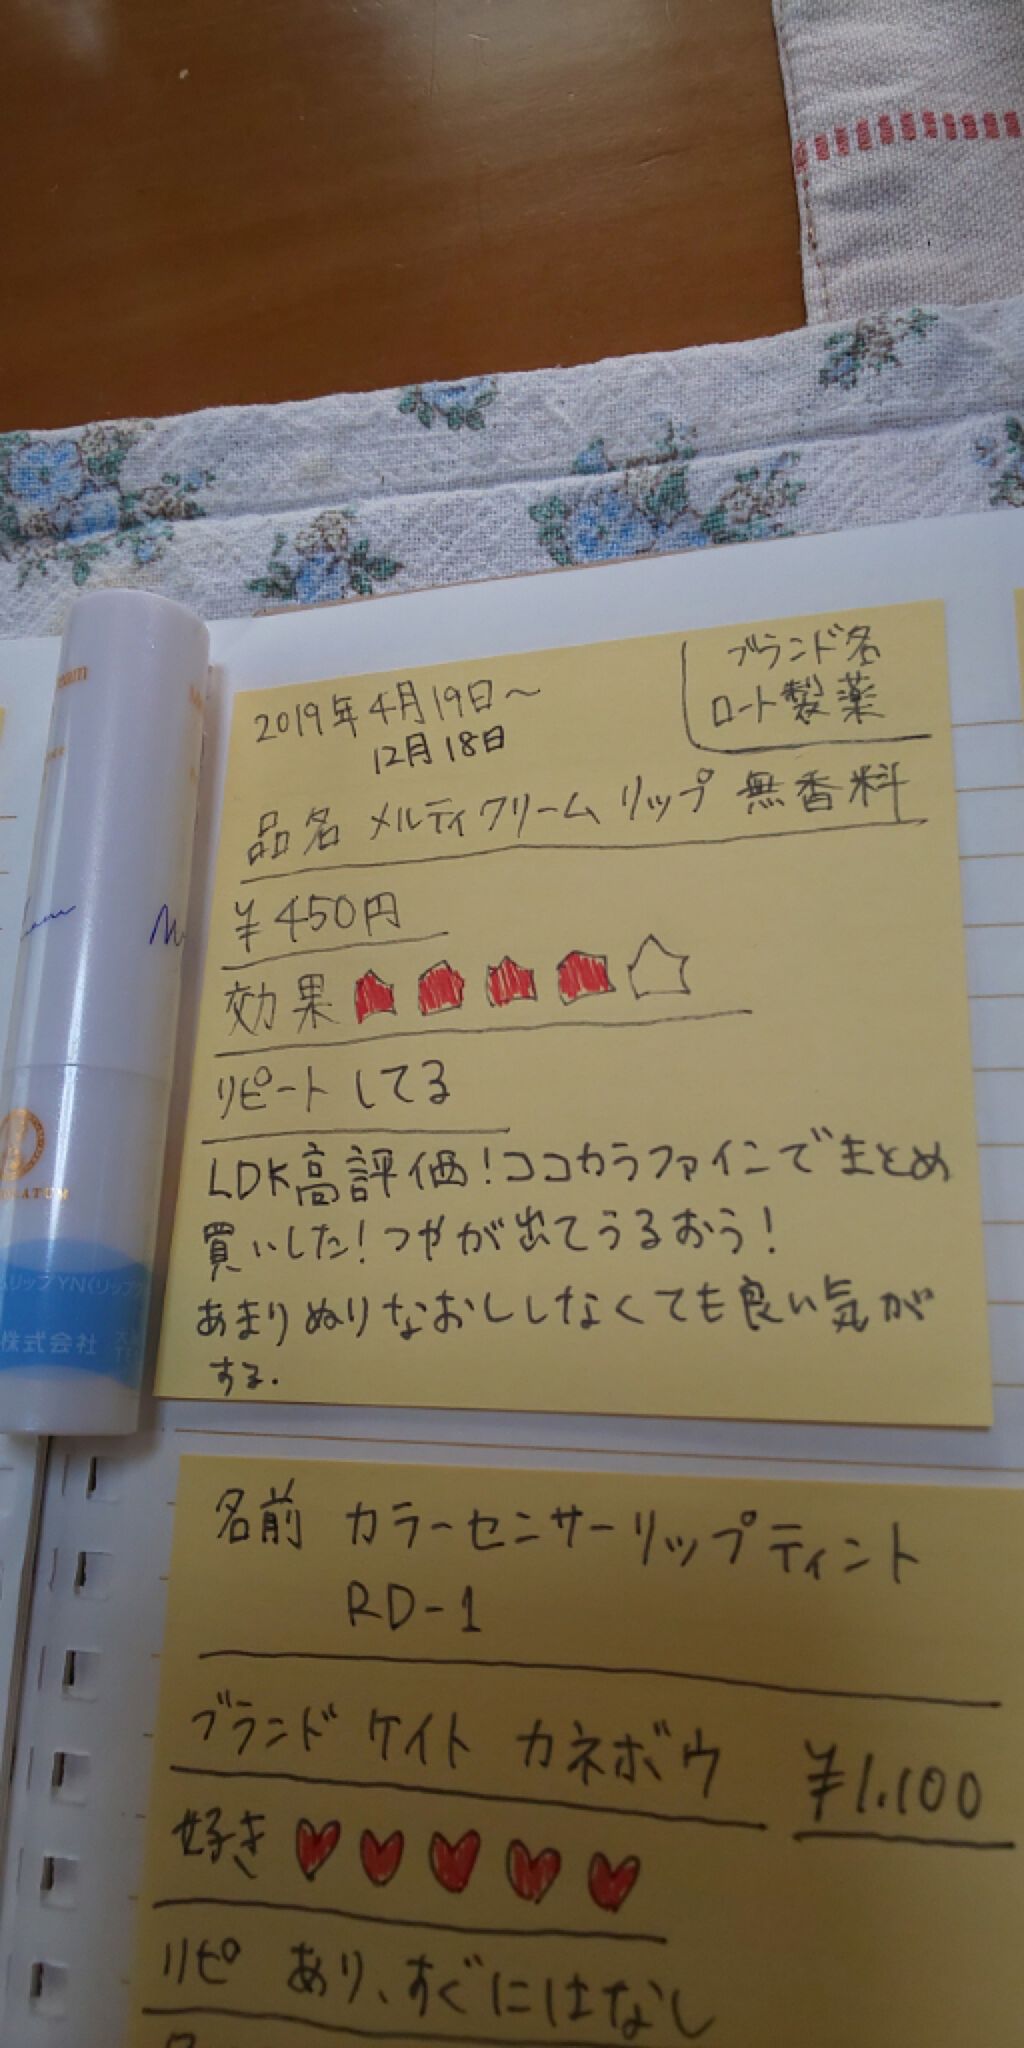 2019年4月19日〜
12月18日
ブランド名
ロート製薬
品名 メルティクリーム リップ 無香料
¥450円
効果
リピート してる
LDK高評価!ココカラファインでまとめ
買いした!つやが出てうるおう!
あまりぬりなおししなくても良い気が
する.
名前 カラーセンサーリップティント
RD-1
ブランド ケイト カネボウ
¥1.100
好き
リピ あり、すぐにはなし
eam
ATUM
リップYN(リップ
株式会社